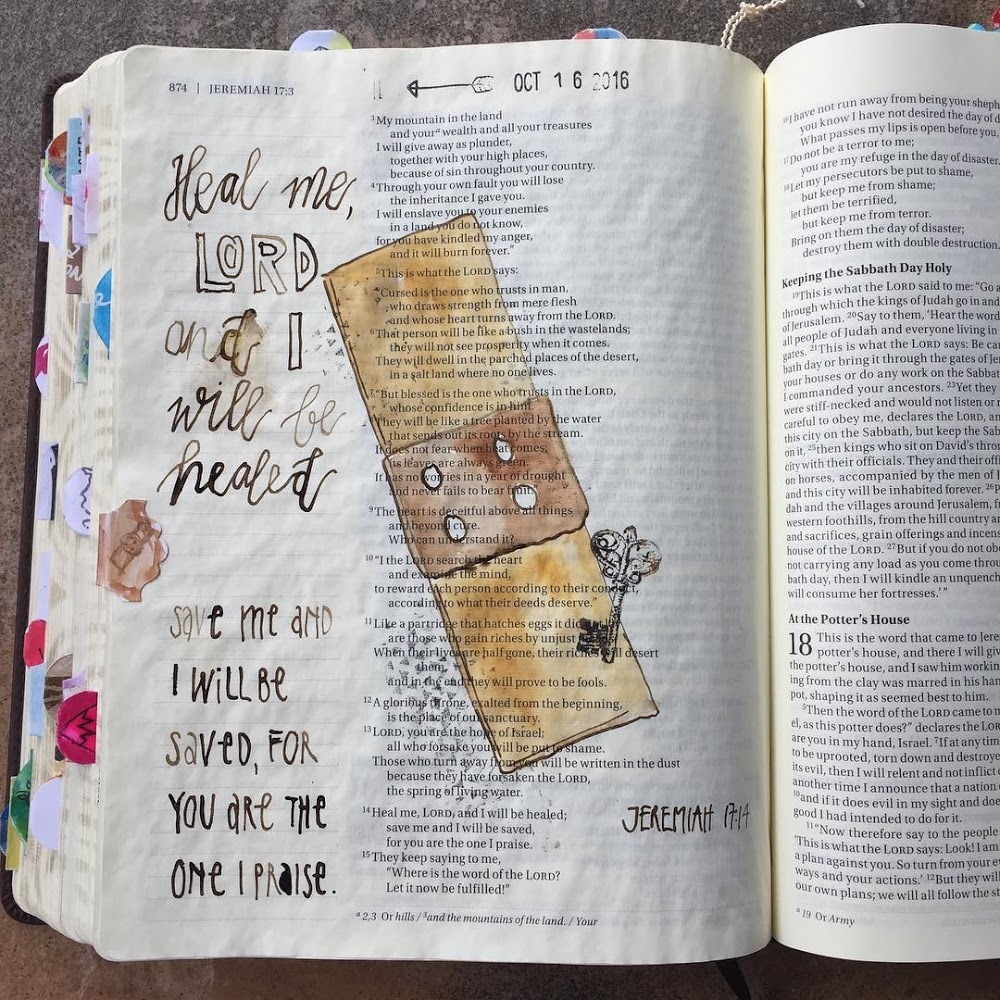 874 | JEREMIAH 17:3
OCT 16 2016
Heal me,
LORD
and I
will be
healed
SAVE ME AND
I WILL BE
SAVED, FOR
YOU ARE THE
ONE I PRAISE.
3 My mountain in the land
and your a wealth and all your treasures
I will give away as plunder,
together with your high places,
because of sin throughout your country.
4 Through your own fault you will lose
the inheritance I gave you.
I will enslave you to your enemies
in a land you do not know,
for you have kindled my anger,
and it will burn forever."
5 This is what the LORD says:
"Cursed is the one who trusts in man,
who draws strength from mere flesh
and whose heart turns away from the LORD.
6 That person will be like a bush in the wastelands;
they will not see prosperity when it comes.
They will dwell in the parched places of the desert,
in a salt land where no one lives.
7 "But blessed is the one who trusts in the LORD,
whose confidence is in him.
8 They will be like a tree planted by the water
that sends out its roots by the stream.
It does not fear when heat comes;
its leaves are always green.
It has no worries in a year of drought
and never fails to bear fruit."
9 The heart is deceitful above all things
and beyond cure.
Who can understand it?
10 "I the LORD search the heart
and examine the mind,
to reward each person according to their conduct,
according to what their deeds deserve."
11 Like a partridge that hatches eggs it did
are those who gain riches by unjust
When their lives are half gone, their riches will desert
them,
and in the end they will prove to be fools.
12 A glorious throne, exalted from the beginning,
is the place of our sanctuary.
13 LORD, you are the hope of Israel;
all who forsake you will be put to shame.
Those who turn away from you will be written in the dust
because they have forsaken the LORD,
the spring of living water.
14 Heal me, LORD, and I will be healed;
save me and I will be saved,
for you are the one I praise.
JEREMIAH 17:14
15 They keep saying to me,
"Where is the word of the LORD?
Let it now be fulfilled!"
a 2,3 Or hills / 3 and the mountains of the land. / Your
16 I have not run away from being your sheph
you know I have not desired the day of d
What passes my lips is open before you.
17 Do not be a terror to me;
you are my refuge in the day of disaster.
18 Let my persecutors be put to shame,
but keep me from shame;
let them be terrified,
but keep me from terror.
Bring on them the day of disaster;
destroy them with double destruction.
Keeping the Sabbath Day Holy
19 This is what the LORD said to me: "Go a
through which the kings of Judah go in and
of Jerusalem. 20 Say to them, 'Hear the word
all people of Judah and everyone living in
gates. 21 This is what the LORD says: Be car
bath day or bring it through the gates of Jer
your houses or do any work on the Sabbat
I commanded your ancestors. 23 Yet they
were stiff-necked and would not listen or r
careful to obey me, declares the LORD, an
this city on the Sabbath, but keep the Sab
on it, 25 then kings who sit on David's thron
city with their officials. They and their offi
on horses, accompanied by the men of J
and this city will be inhabited forever. 26 P
dah and the villages around Jerusalem, fr
western foothills, from the hill country a
and sacrifices, grain offerings and incens
house of the LORD. 27 But if you do not ob
not carrying any load as you come throug
bath day, then I will kindle an unquench
will consume her fortresses.'"
At the Potter's House
18 This is the word that came to Jere
potter's house, and there I will giv
the potter's house, and I saw him workin
ing from the clay was marred in his han
pot, shaping it as seemed best to him.
5 Then the word of the LORD came to m
el, as this potter does?" declares the LORD
are you in my hand, Israel. 7 If at any tim
to be uprooted, torn down and destroyed
its evil, then I will relent and not inflict o
another time I announce that a nation o
10 and if it does evil in my sight and does
good I had intended to do for it.
11 "Now therefore say to the people
'This is what the LORD says: Look! I am
a plan against you. So turn from your ev
ways and your actions.' 12 But they will
our own plans; we will all follow the st
a 19 Or Army